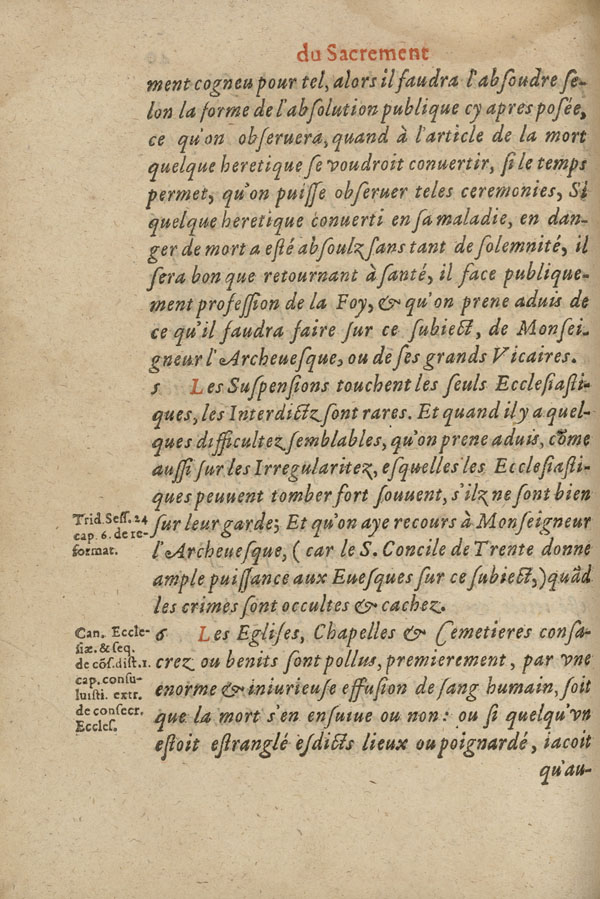 du Sacrement
ment cogneu pour tel, alors il faudra l'absoudre se-
lon la forme de l'absolution publique cy apres posée,
ce qu'on obseruera, quand à l'article de la mort
quelque heretique se voudroit conuertir, si le temps
permet, qu'on puisse obseruer teles ceremonies, Si
quelque heretique conuerti en sa maladie, en dan-
ger de mort a esté absoulz sans tant de solemnité, il
sera bon que retournant à santé, il face publique-
ment profession de la Foy, & qu'on prene aduis de
ce qu'il faudra faire sur ce subiect, de Monsei-
gneur l'Archeuesque, ou de ses grands Vicaires.
5 Les Suspensions touchent les seuls Ecclesiasti-
ques, les Interdictz sont rares. Et quand il y a quel-
ques difficultez semblables, qu'on prene aduis, cõme
aussi sur les Irregularitez, esquelles les Ecclesiasti-
ques peuuent tomber fort souuent, s'ilz ne sont bien
sur leur garde; Et qu'on aye recours à Monseigneur
l'Archeuesque, ( car le S. Concile de Trente donne
ample puissance aux Euesques sur ce subiect,) quãd
les crimes sont occultes & cachez.
Trid. Sess. 24
cap. 6. de re-
format.
6 Les Eglises, Chapelles & Cemetieres consa-
crez ou benits sont pollus, premierement, par vne
enorme & iniurieuse effusion de sang humain, soit
que la mort s'en ensuiue ou non: ou si quelqu'vn
estoit estranglé esdicts lieux ou poignardé, iacoit
qu'au-
Can. Eccle-
siæ. & seq.
de cõs. dist. 1.
cap. consu-
luisti. extr.
de consecr.
Eccles.